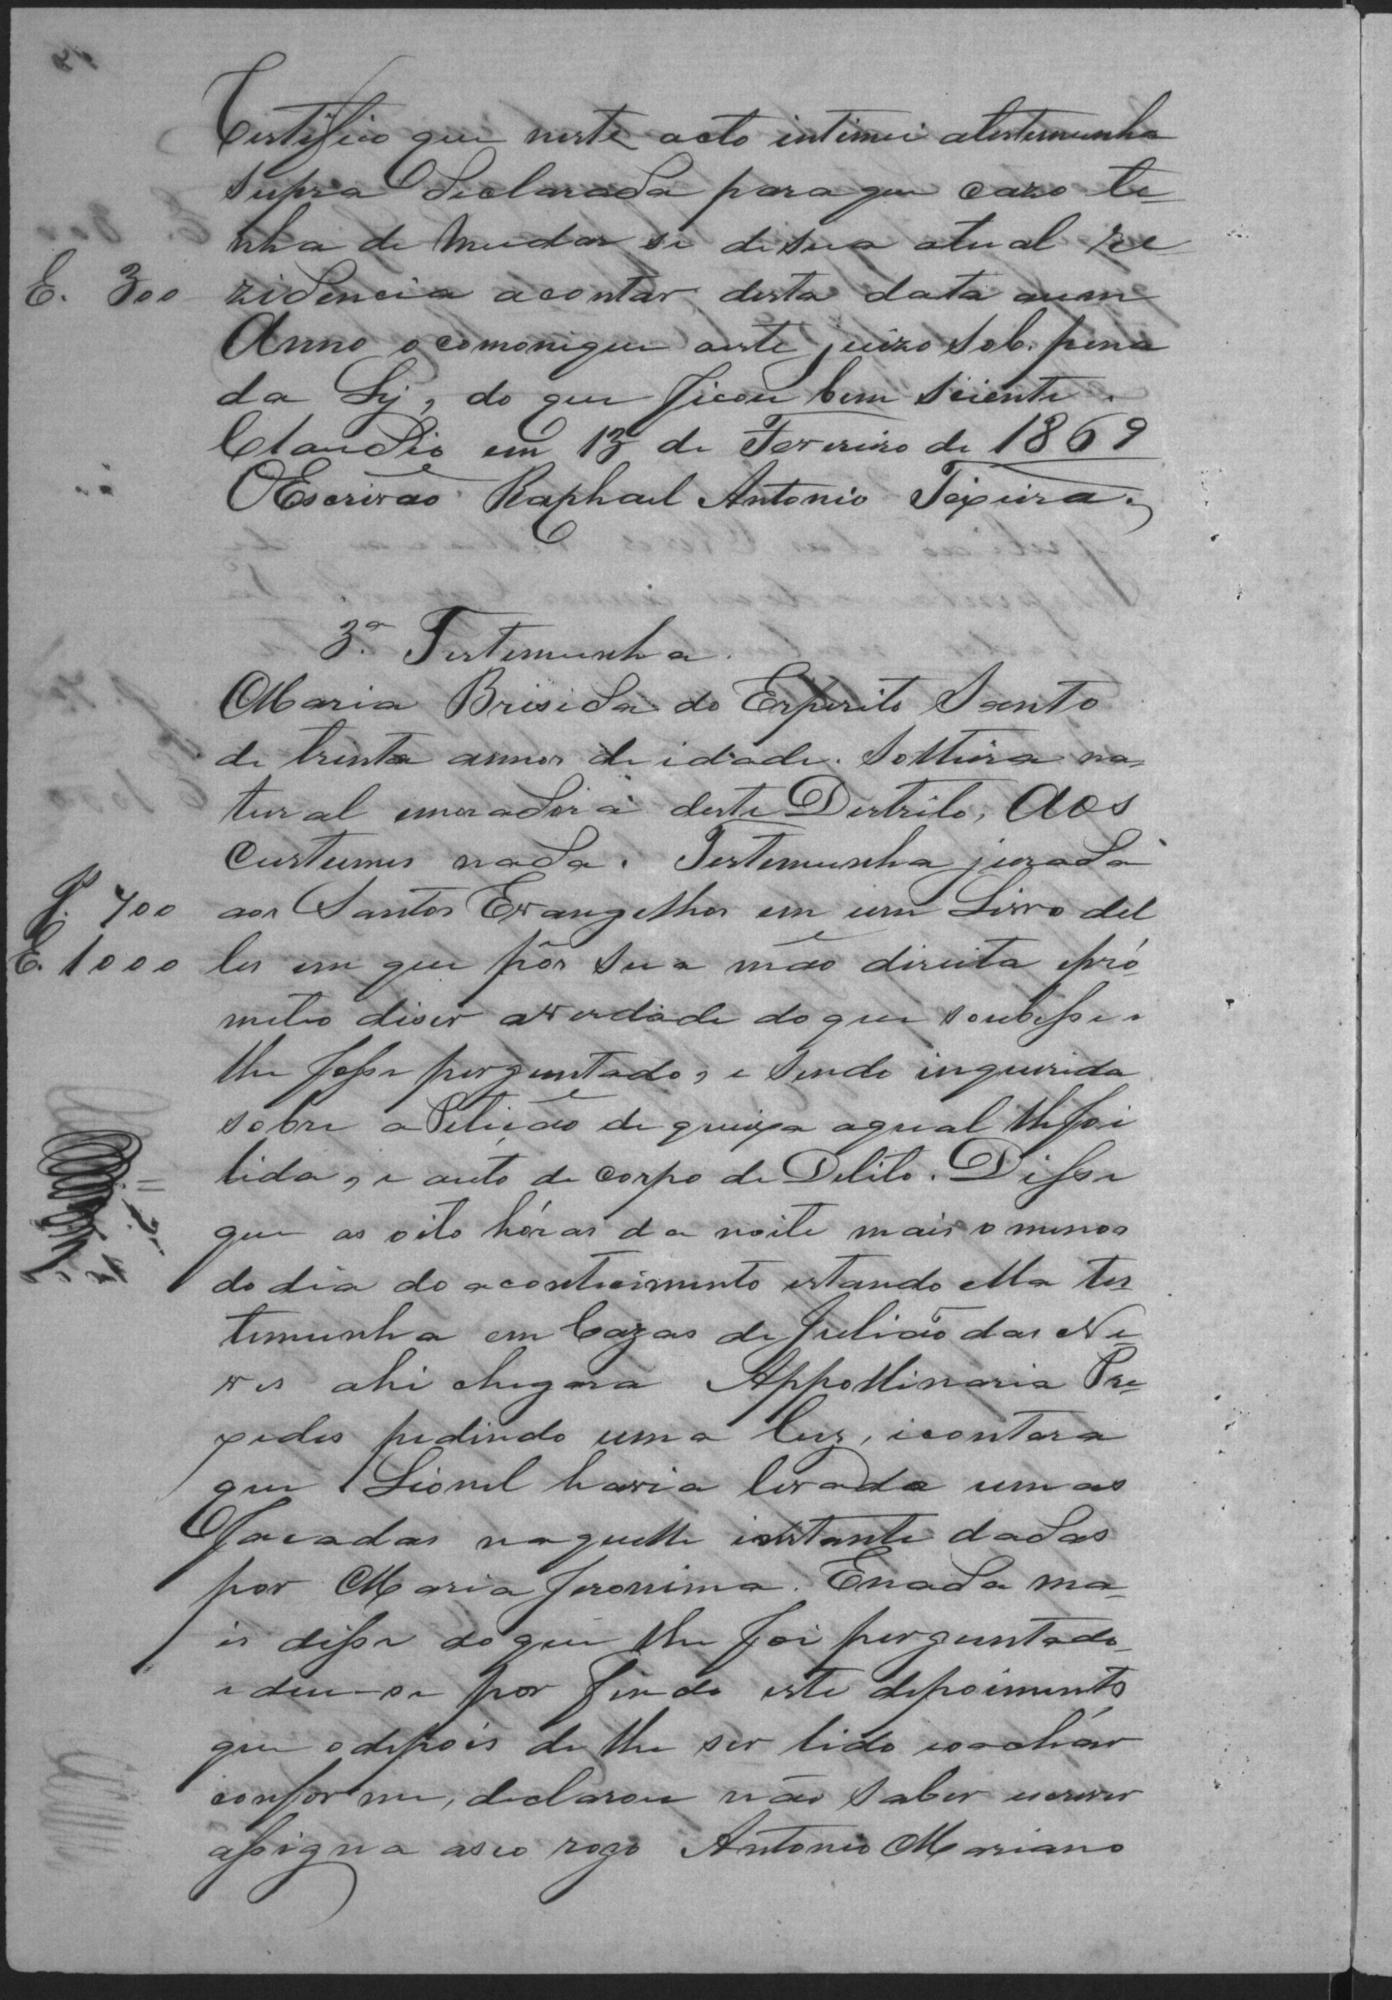 Certifico que neste acto intimei atestemunha
supra declarada para que cazo te-
nha de mudar se de sua atual re
E. 300 zidencia acontar desta data aum
Anno o comonique aeste juizo sob. pena
da Lej, do que ficou bem sciente.
Claudio em 13 de Fevereiro de 1869
OEscrivão Raphael Antonio Teixeira.
3.ª Testemunha.
Maria Brisida do Esperito Santo
de trinta annos de idade. Solteira na-
tural emoradora deste Destrito, Aos
Custumes nada. Testemunha jurada
J. 400 aos Santos Evangelhos em um Livro del
E. 1000 les em que pôs sua mão direita epró-
meteo diser averdade doque soubesse e
lhe fosse perguntado, e sendo inquerida
sobre a Petição de queixa aqual lhe foi
lida, e auto de corpo de Delito. Disse
que as oito hóras da noite mais o menos
do dia do acontecimento estando ella tes-
temunha em Cazas de Julião das Ne-
ves ahi chegara Appollinaria Pra-
xedes pedindo uma luz, econtara
que Lionel havia levado umas
Facadas naquelle instante dadas
por Maria Jeronima. Enada ma-
is disse doque lhe foi perguntado
e deu-se por findo este depoimento
que odepois de lhe ser lido eoachár
conforme, declarou não saber escrever
assigna aseo rogo Antonio Mariano